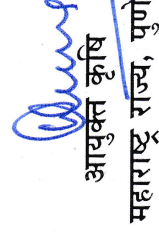 आयुक्त कृषि
महाराष्ट्र राज्य, पुणे